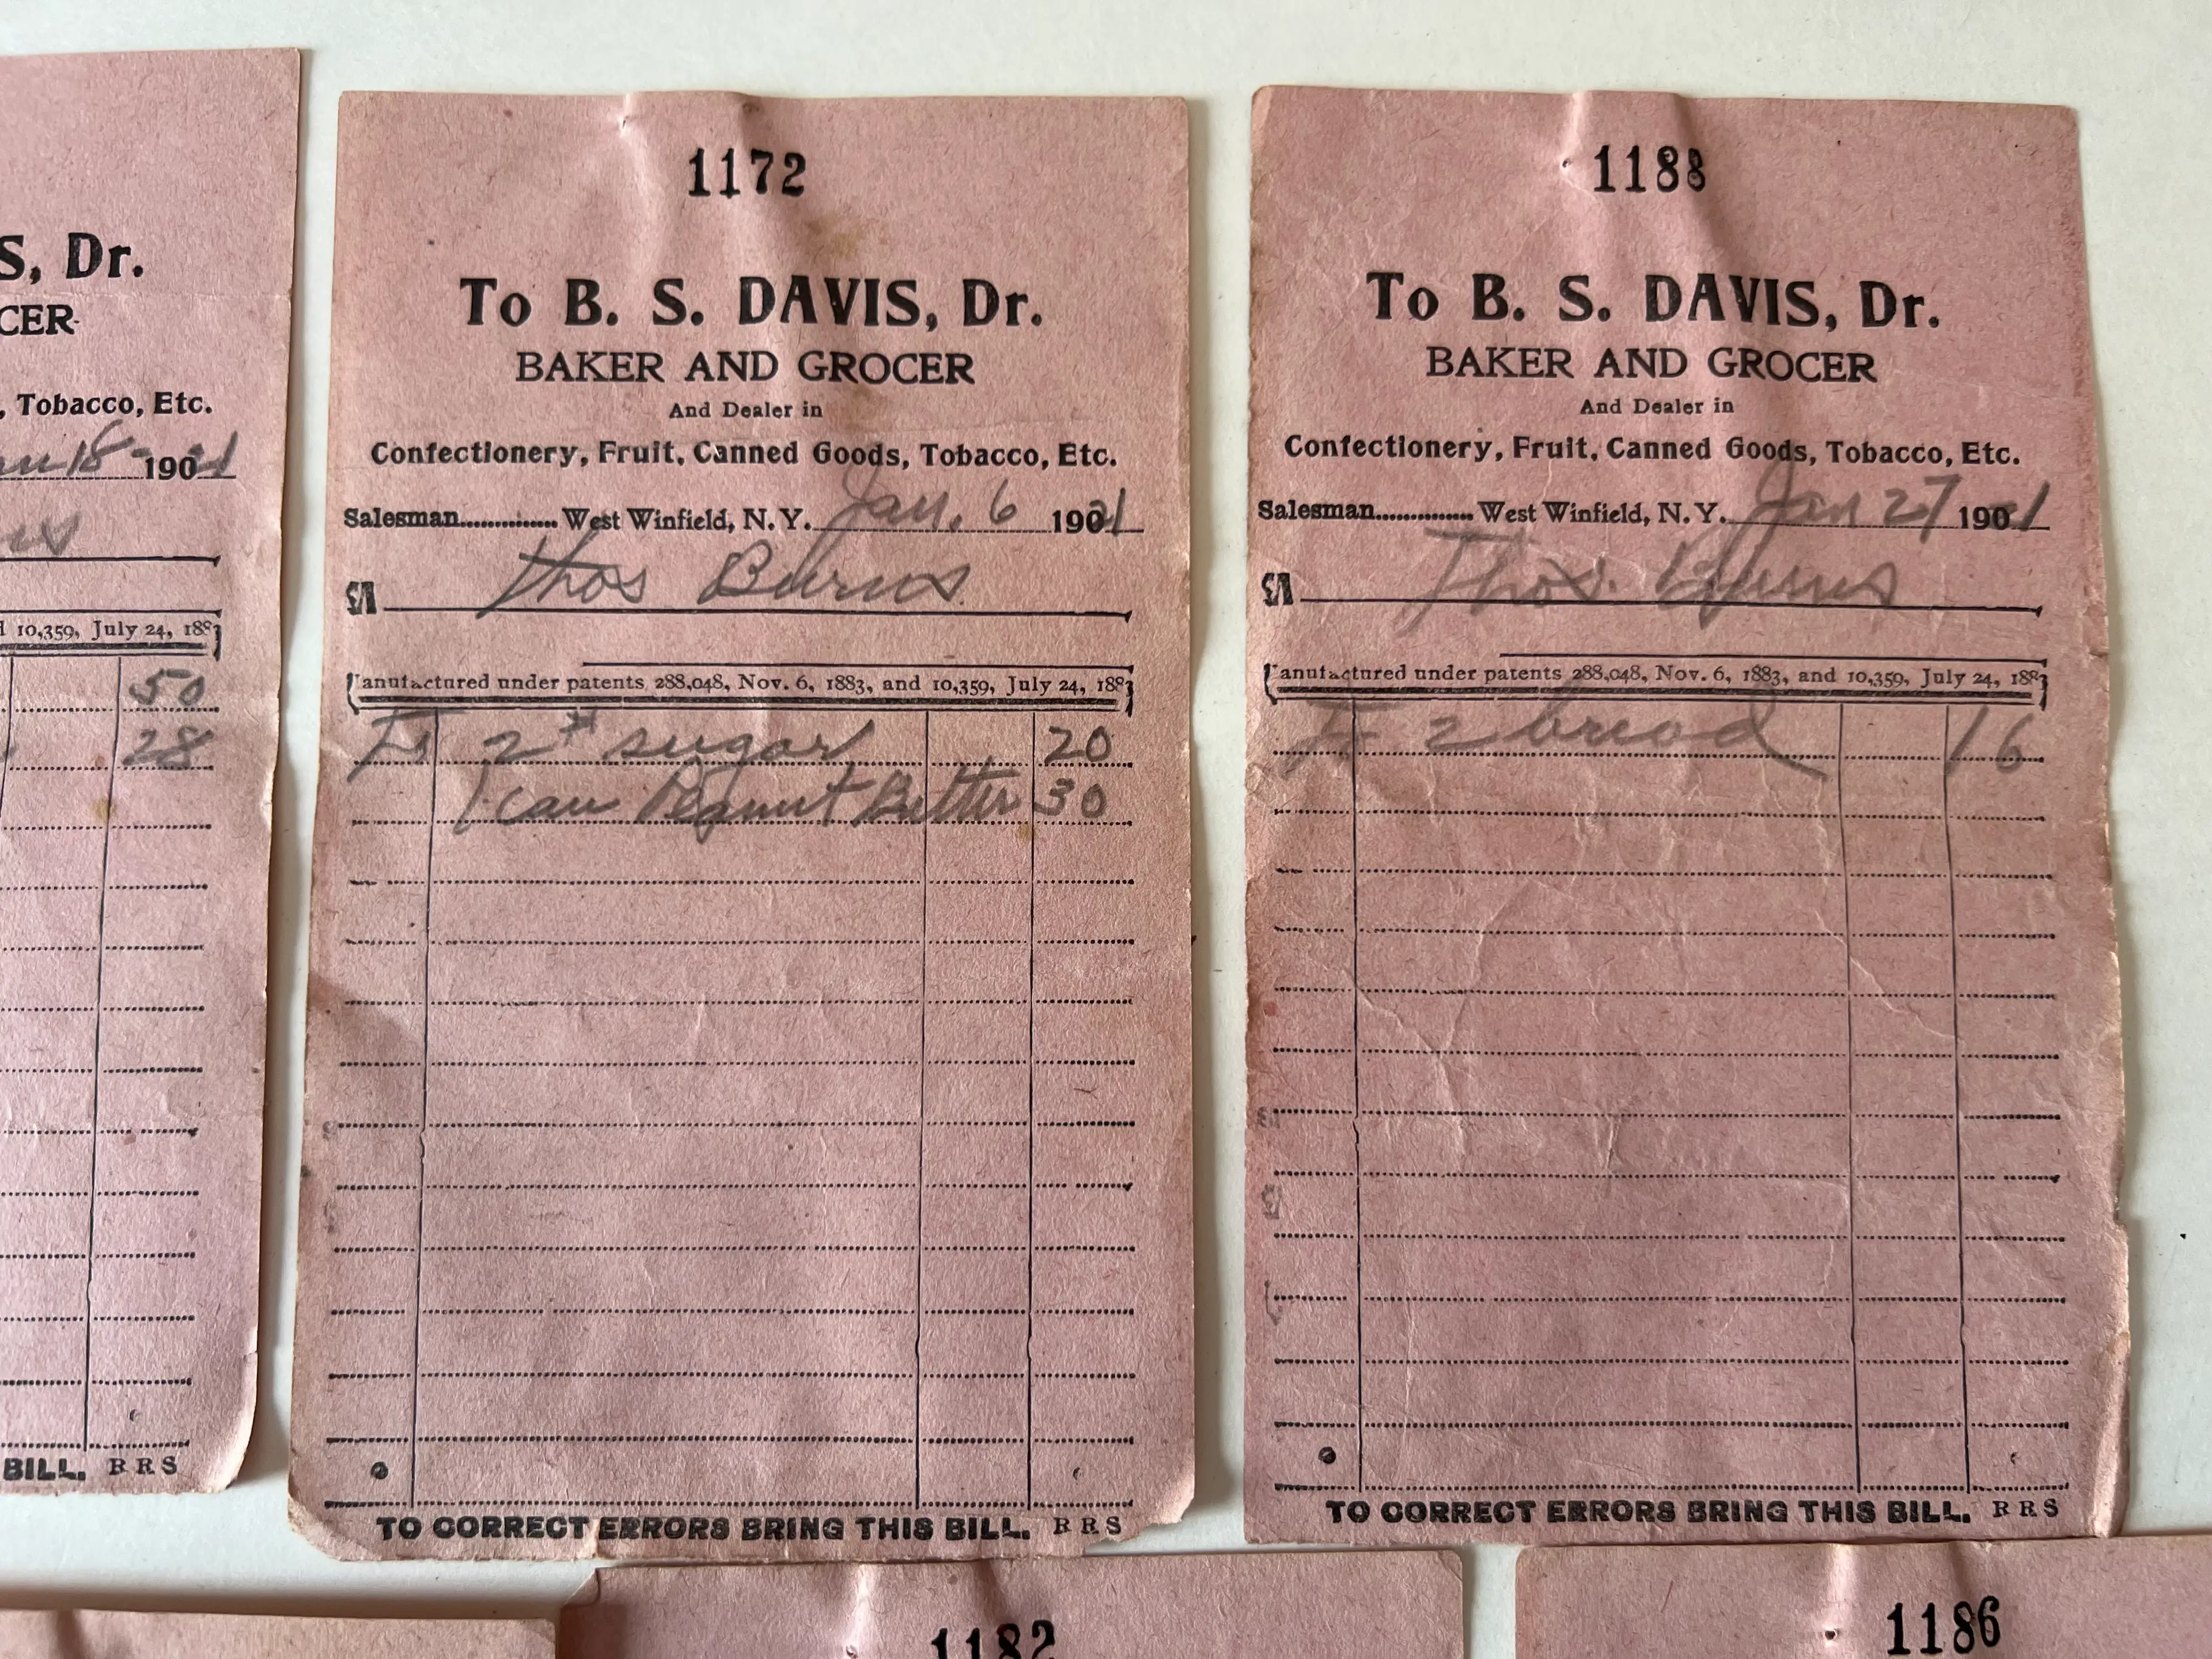 S, Dr.
CER
, Tobacco, Etc.
18 - 1921
10,359, July 24, 188
50
28
BILL. RRS
1172
To B. S. DAVIS, Dr.
BAKER AND GROCER
And Dealer in
Confectionery, Fruit, Canned Goods, Tobacco, Etc.
Salesman.............. West Winfield, N. Y. Jan. 6 1921
M Thos Burns
anufactured under patents 288,048, Nov. 6, 1883, and 10,359, July 24, 1883
2# sugar 20
1 can Peanut Butter 30
TO CORRECT ERRORS BRING THIS BILL. RRS
1188
To B. S. DAVIS, Dr.
BAKER AND GROCER
And Dealer in
Confectionery, Fruit, Canned Goods, Tobacco, Etc.
Salesman.............. West Winfield, N. Y. Jan 27 1921
M Thos. Burns
anufactured under patents 288,048, Nov. 6, 1883, and 10,359, July 24, 188
2 bread 16
TO CORRECT ERRORS BRING THIS BILL. RRS
1182
1186